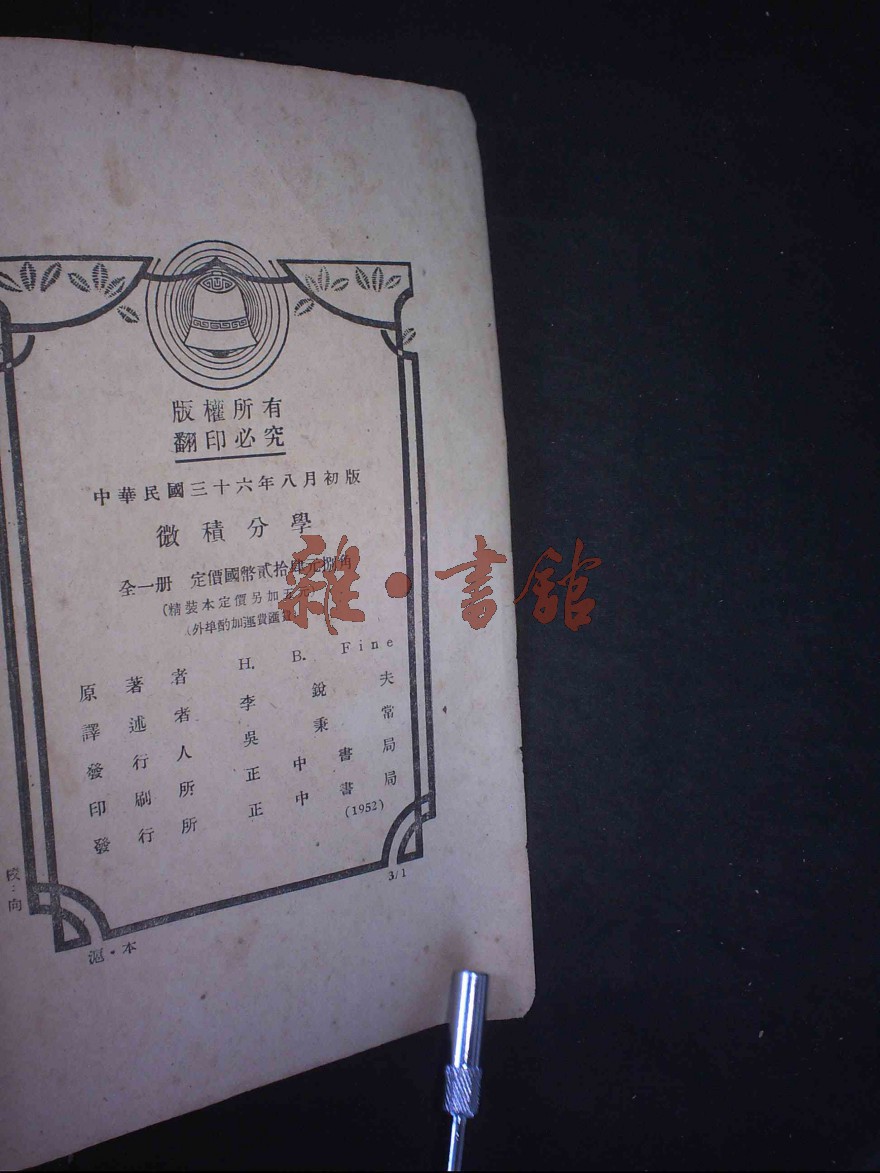 版權所有
翻印必究
中華民國三十六年八月初版
微積分學
全一册 定價國幣貳拾肆元捌角
(精裝本定價另加五元
(外埠酌加運費匯費
原著者 H. B. Fine
譯述者 李銳夫
發行人 吳秉常
印刷所 正中書局
發行所 正中書局
(1952)
校:向
滬·本
3/1
雜·書館